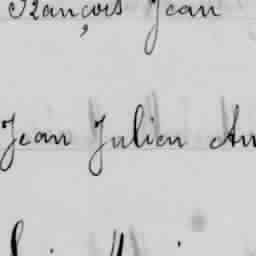 François Jean
Jean Julien An